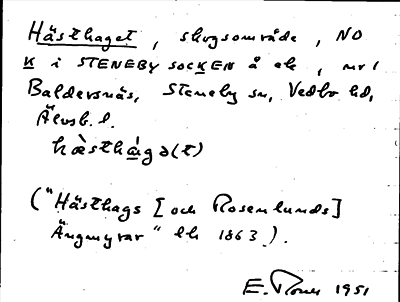 Hästhaget, skogsområde, NO
K i STENEBY SOCKEN å ek, nr 1
Baldersnäs, Steneby sn, Vedbo hd,
Älvsb. l.
hæ̀sthágə(t)
("Hästhags [och Rosenlunds]
Ängmyrar" lh 1863.).
E. 1951